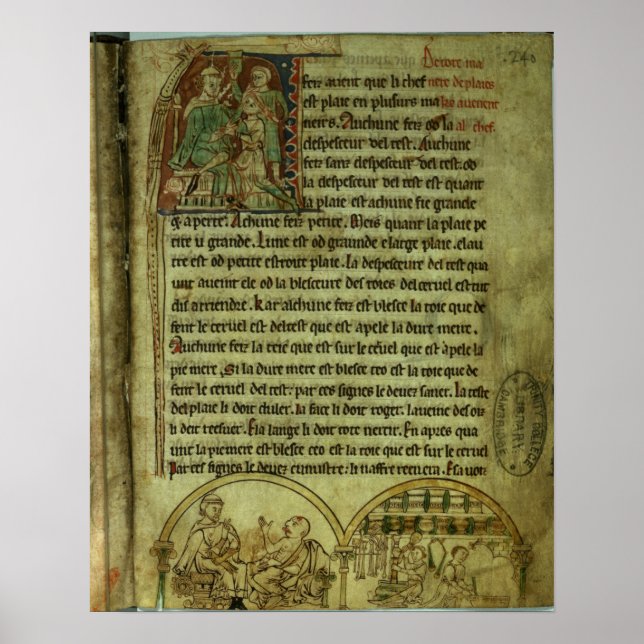 De tote ma
240
feiz avient que li chef nere de plaies
est plaie en plusurs ma ke avenent
neirs. Auchune feiz od la al chef.
despesceur del test. Auchune
feiz sanz despesceur del test. od
la despesceur del test est quant
la plaie est achune fie grande
& aperte. Achune feiz petite. Meis quant la plaie pe
tite u grande. Lune est od graunde e large plaie. e lau
tre est od petite estroite plaie. la despesceure del test qua
unt avient ele od la blesceure des toies del cervel estut
dis arriendre. Kar alchune feiz est blesce la toie que de
fent le cervel est del test que est apele la dure mere.
Auchune feiz la toie que est sur le cervel que est apele la
pie mere. Si la dure mere est blesce ceo est la toie que de
fent le cervel del test: par ces signes le devez saver. la teste
del plaie li doit duler. la face li doit roger. la veine des oiz
li deit
E la lange li doit tote nercir. En apres qua
unt la pie mere est blesce ceo est la toie que est sur le cervel
Par ces signes le devez cunustre: li naffre
E sa voiz
TRINITY COLLEGE
LIBRARY
CAMBRIDGE